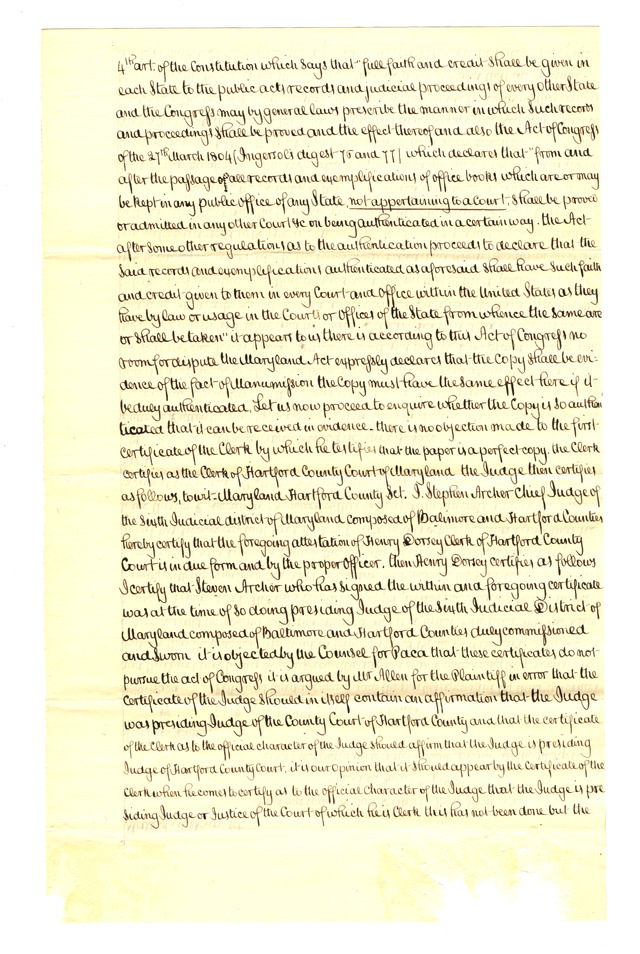 4th art. of the Constitution which says that "full faith and credit shall be given in
each State to the public acts records and judicial proceedings of every other State
and the Congress may by general laws prescribe the manner in which such records
and proceedings shall be proved and the effect thereof and also the Act of Congress
of the 27th March 1804 (Ingersol's digest 76 and 77) which declares that "from and
after the passage of all records and exemplifications of office books which are or may
be kept in any public office of any State, not appertaining to a Court, shall be proved
or admitted in any other Court &c on being authenticated in a certain way. the Act
after some other regulations as to the authentication proceeds to declare that the
said records and exemplifications authenticated as aforesaid shall have such faith
and credit given to them in every Court and Office within the United States as they
have by law or usage in the Courts or Offices of the State from whence the same are
or shall be taken" it appears to us there is according to this Act of Congress no
room for dispute the Maryland Act expressly declares that the Copy shall be evi-
dence of the fact of Manumission the Copy must have the same effect here if it
be duly authenticated. Let us now proceed to enquire whether the Copy is so authen
ticated that it can be received in evidence. there is no objection made to the first
certificate of the Clerk by which he testifies that the paper is a perfect copy. the Clerk
certifies as the Clerk of Hartford County Court of Maryland the Judge then certifies
as follows, to wit= Maryland Hartford County Sct. I. Stephen Archer Chief Judge of
the Sixth Judicial district of Maryland composed of Balimore and Hartford Counties
hereby certify that the foregoing attestation of Henry Dorsey Clerk of Hartford County
Court is in due form and by the proper Officer. then Henry Dorsey certifies as follows
I certify that Steven Archer who has signed the within and foregoing certificate
was at the time of so doing presiding Judge of the Sixth Judicial District of
Maryland composed of Baltimore and Hartford Counties duly commissioned
and Sworn it is objected by the Counsel for Paca that these certificates do not
pursue the act of Congress it is argued by Mr Allen for the Plaintiff in error that the
certificate of the Judge should in itself contain an affirmation that the Judge
was presiding Judge of the County Court of Hartford County and that the certificate
of the Clerk as to the official character of the Judge should affirm that the Judge is presiding
Judge of Hartford County Court, it is our opinion that it should appear by the Certificate of the
Clerk when he comes to certify as to the official Character of the Judge that the Judge is pre
siding Judge or Justice of the Court of which he is Clerk this has not been done but the